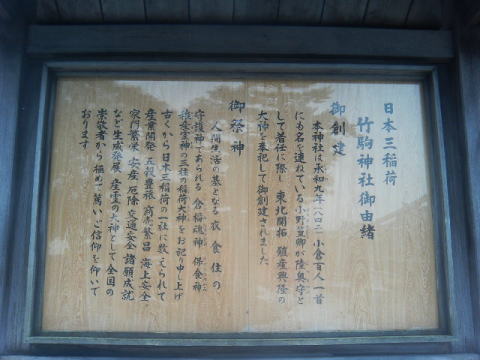 日本三稲荷
竹駒神社御由緒
御創建
本神社は承和九年(八四二)小倉百人一首
にも名を連ねている小野篁卿が陸奥守と
して着任に際し、東北開拓、殖産興隆の
大神を奉祀して御創建されました。
御祭神
人間生活の基となる衣食住の
守護神であられる倉稲魂神、保食神、
稚産霊神の三柱の稲荷大神をお祀り申し上げ
古くから日本三稲荷の一社に数えられて
産業開発、五穀豊穣、商売繁昌、海上安全、
家門繁栄、安産、厄除、交通安全、諸願成就
など生成発展、産霊の大神として全国の
崇敬者から極めて篤いご信仰を仰いで
おります。